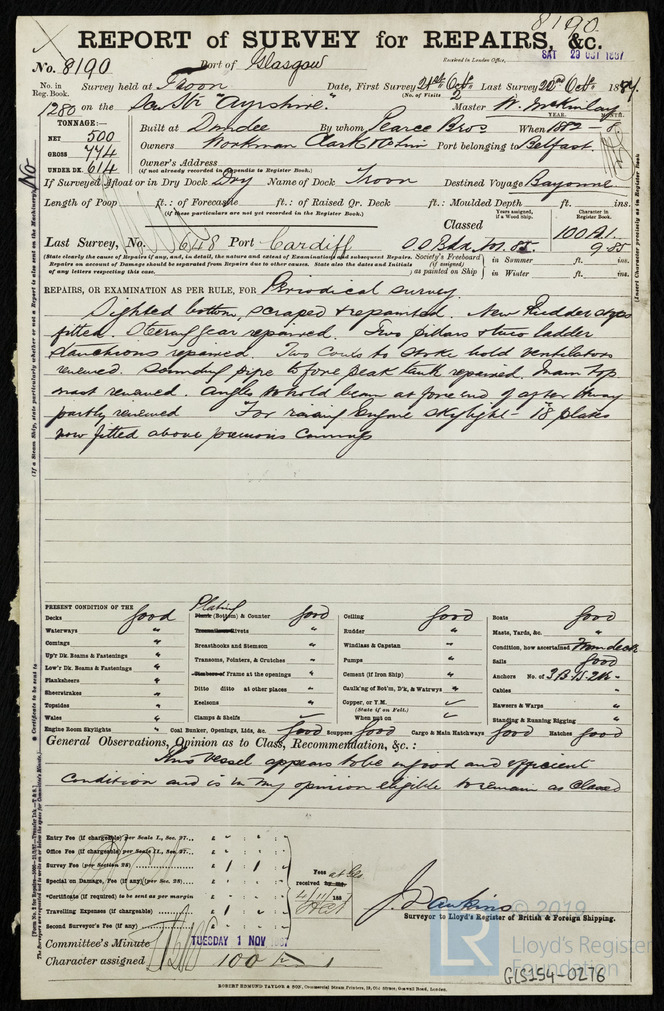 8190
REPORT of SURVEY for REPAIRS, &c.
No. 8190 Port of Glasgow Received in London Office, SAT 29 OCT 1887
No. in Reg. Book. Survey held at Troon Date, First Survey 21st Octr Last Survey 22nd Octr 1887
(No. of Visits 2)
1280 on the Sc Str "Ayrshire." Master W. McKinlay
TONNAGE:— YEAR. MONTH.
NET 500 Built at Dundee By whom Pearce Bros When 1882 - 8
GROSS 774 Owners Workman Clark & Port belonging to Belfast.
UNDER DK. 614 Owner's Address
(if not already recorded in Appendix to Register Book.)
If Surveyed Afloat or in Dry Dock Dry Name of Dock Troon Destined Voyage Bayonne
Length of Poop ft.: of Forecastle ft.: of Raised Qr. Deck ft.: Moulded Depth ft. ins.
(if these particulars are not yet recorded in the Register Book.)
Classed
Years assigned, if a Wood Ship. Character in Register Book.
100 A1.
9.85
Last Survey, No. 5648 Port Cardiff
(State clearly the cause of Repairs if any, and, in detail, the nature and extent of Examinations and subsequent Repairs.
Repairs on account of Damage should be separated from Repairs due to other causes. State also the dates and Initials
of any letters respecting this case.)
Society's Freeboard (if assigned) as painted on Ship
in Summer ft. ins.
in Winter ft. ins.
REPAIRS, OR EXAMINATION AS PER RULE, FOR Periodical survey
Sighted bottom, scraped & repainted. New Rudder stops
fitted. Steering gear repaired. Two pillars & two ladder
stanchions repaired. Two Cowls to stoke hold ventilators
renewed. Sounding pipe to fore peak tank repaired. Main top
mast renewed. Angles to hold beam at fore end of after H way
partly renewed "For raising Engine skylight - 18" plates
now fitted above previous comings
PRESENT CONDITION OF THE
Decks good
Waterways "
Comings "
Up'r Dk. Beams & Fastenings "
Low'r Dk. Beams & Fastenings "
Planksheers "
Sheerstrakes "
Topsides "
Wales "
Engine Room Skylights "
Plating
Plank (Bottom) & Counter good
Treenails or Rivets "
Breasthooks and Stemson "
Transoms, Pointers, & Crutches "
Timbers or Frame at the openings "
Ditto ditto at other places "
Keelsons "
Clamps & Shelfs
Coal Bunker, Openings, Lids, &c. good
Ceiling good
Rudder "
Windlass & Capstan "
Pumps "
Cement (if Iron Ship) "
Caulk'ng of Bot'm, D'k, & Watrwys "
Copper, or Y.M.
(State if on Felt.)
When put on
Scuppers good Cargo & Main Hatchways good
Boats good
Masts, Yards, &c. "
Condition, how ascertained From deck
Sails good
Anchors No. of 3 B. 1 S. 2 K.
Cables "
Hawsers & Warps "
Standing & Running Rigging "
Hatches good
General Observations, Opinion as to Class, Recommendation, &c.:
This vessel appears to be in good and efficient
condition and is in my opinion eligible to remain as Classed
Entry Fee (if chargeable) per Scale I., Sec. 27...
Office Fee (if chargeable) per Scale II., Sec. 27...
Survey Fee (per Section 28)
Special on Damage, Fee (if any) (per Sec. 28)
*Certificate (if required) to be sent as per margin
Travelling Expenses (if chargeable)
Second Surveyor's Fee (if any)
Fees
received
J. Dawkins
Surveyor to Lloyd's Register of British & Foreign Shipping.
Committee's Minute TUESDAY 1 NOV 1887
Character assigned 100 A 1
© 2019
LR
Lloyd's Register
Foundation
GLS154-0276
ROBERT EDMUND TAYLOR & SON, Commercial Steam Printers, 19, Old Street, Goswell Road, London.